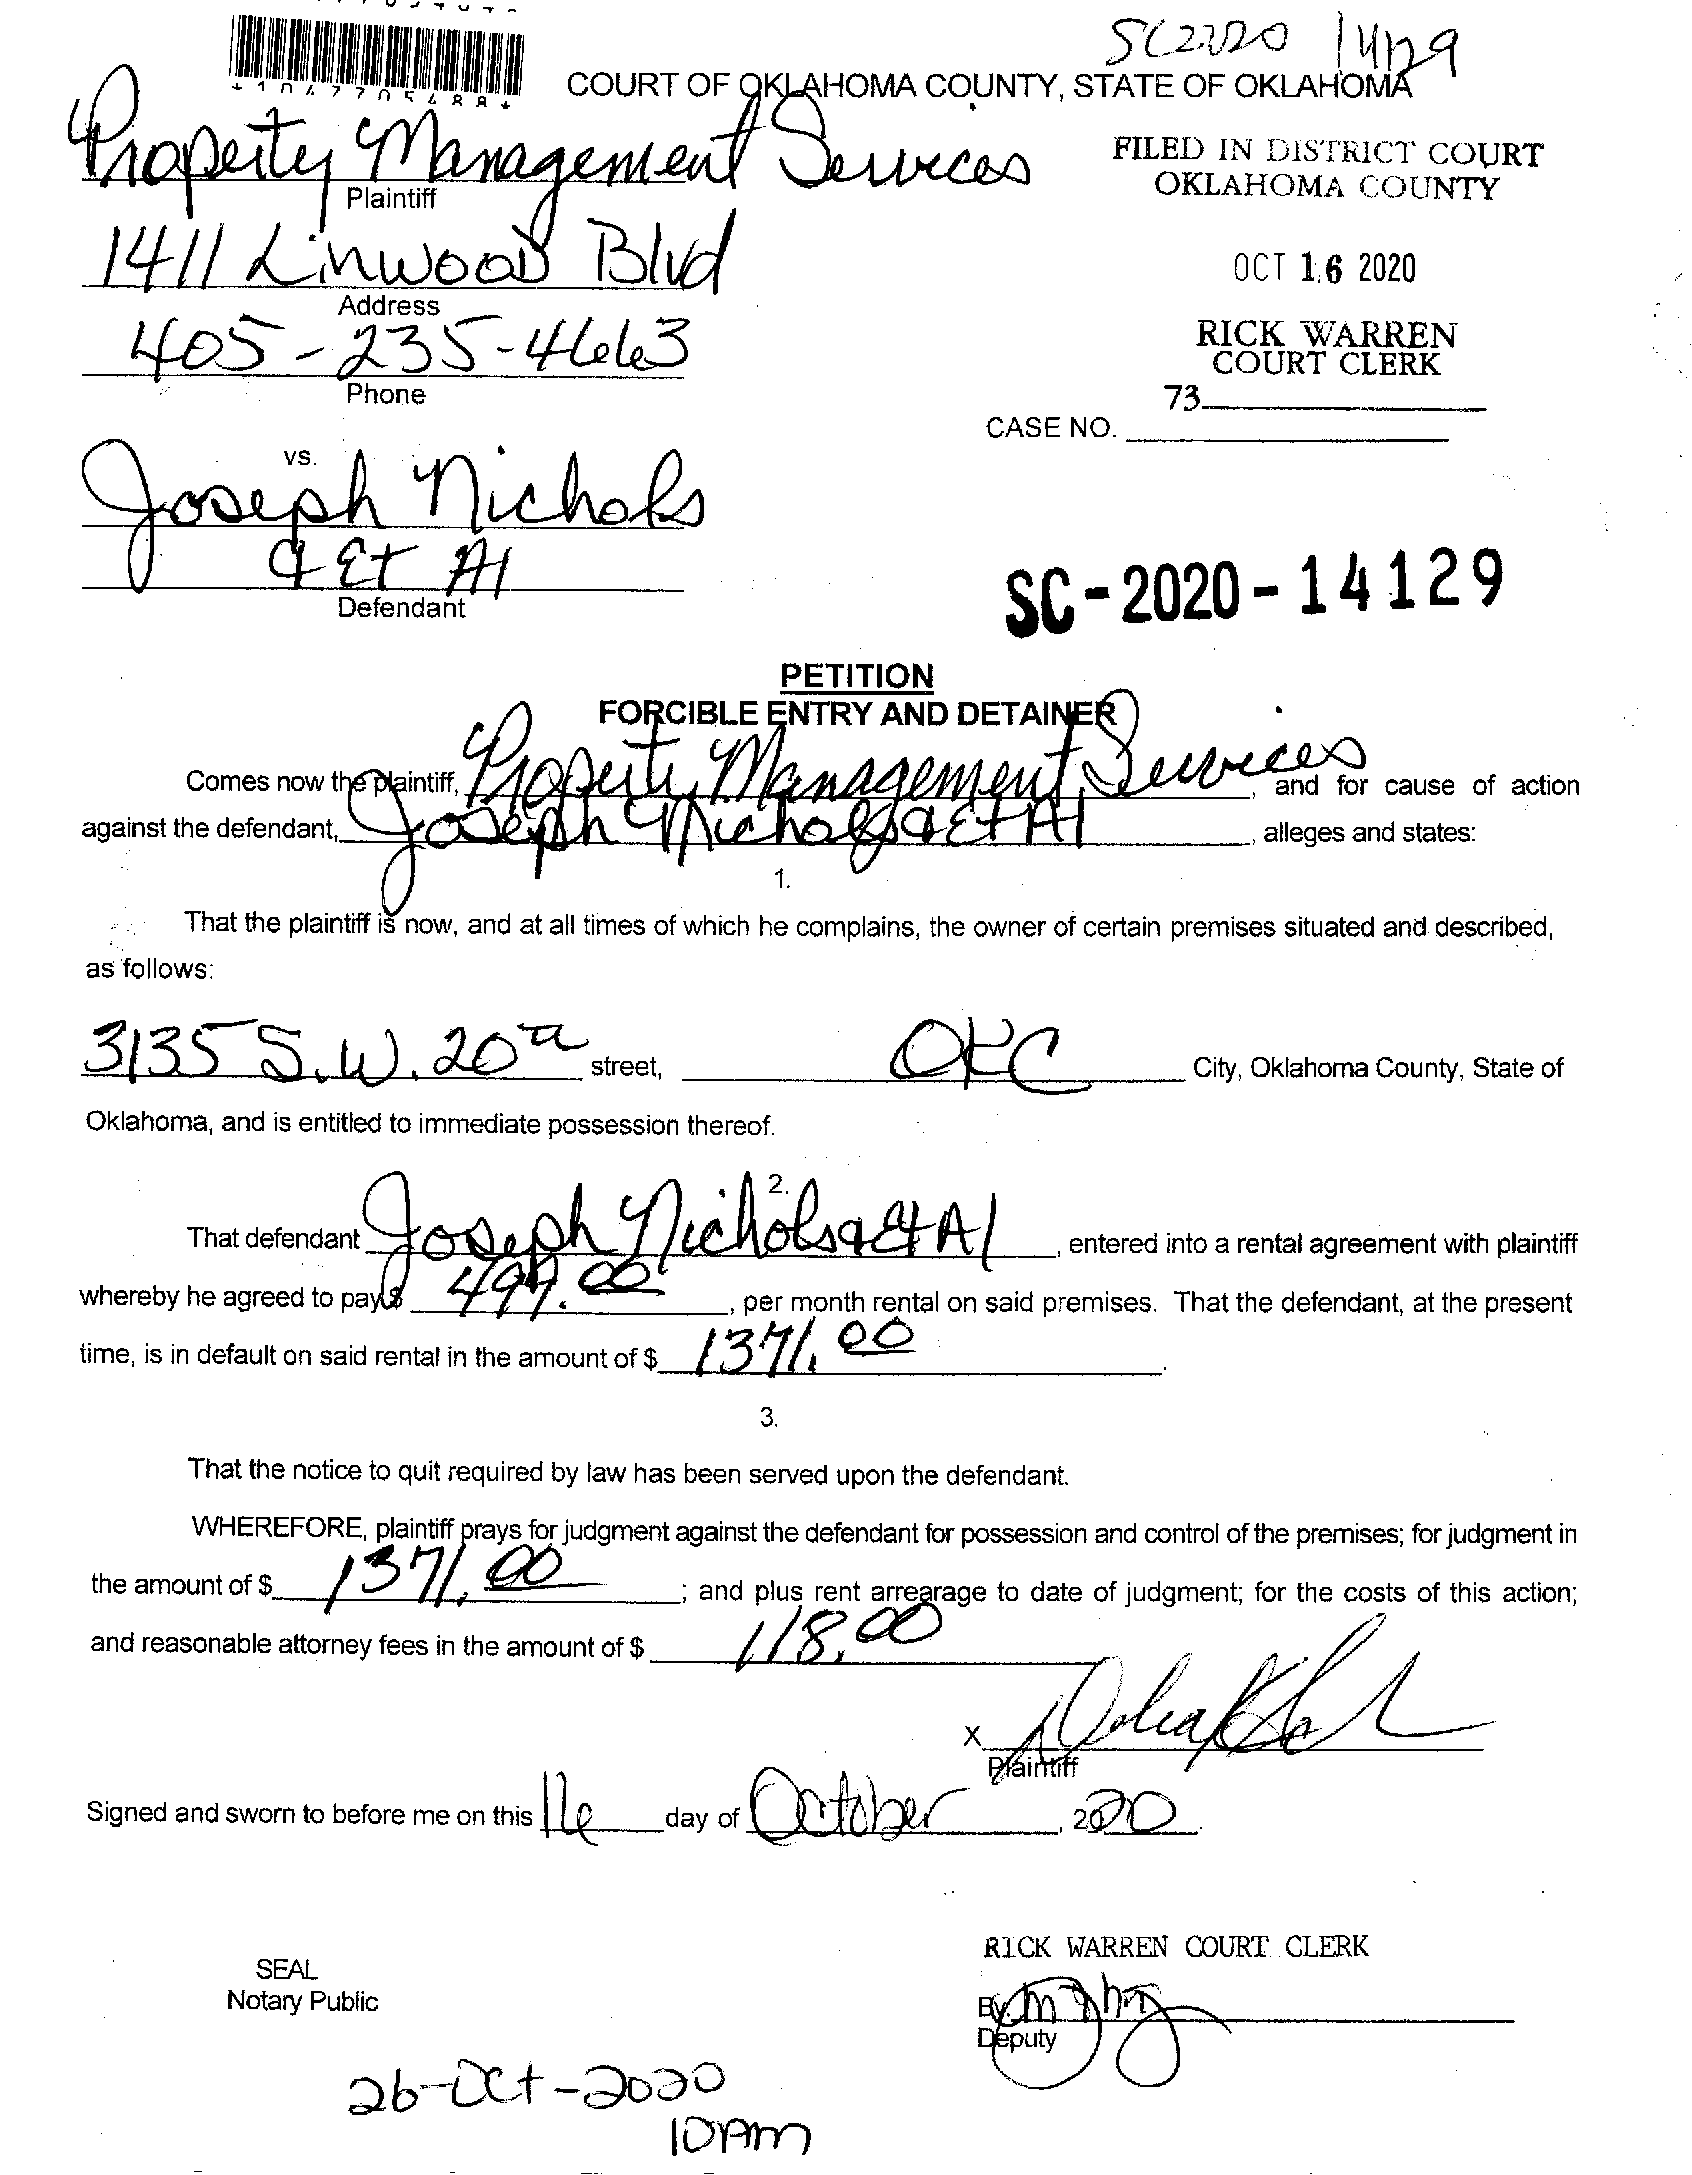 SC2020 14129
COURT OF OKLAHOMA COUNTY, STATE OF OKLAHOMA
Property Management Services
Plaintiff
FILED IN DISTRICT COURT
OKLAHOMA COUNTY
1411 Linwood Blvd
Address
OCT 16 2020
405-235-4663
Phone
RICK WARREN
COURT CLERK
73
CASE NO.
vs.
Joseph Nichols
& Et Al
Defendant
SC-2020-14129
PETITION
FORCIBLE ENTRY AND DETAINER
Comes now the plaintiff, Property Management Services, and for cause of action
against the defendant, Joseph Nichols & Et Al, alleges and states:
1.
That the plaintiff is now, and at all times of which he complains, the owner of certain premises situated and described,
as follows:
3135 S.W. 20th street, OKC City, Oklahoma County, State of
Oklahoma, and is entitled to immediate possession thereof.
2.
That defendant Joseph Nichols & Et Al, entered into a rental agreement with plaintiff
whereby he agreed to pay $ 499.00, per month rental on said premises. That the defendant, at the present
time, is in default on said rental in the amount of $ 1371.00.
3.
That the notice to quit required by law has been served upon the defendant.
WHEREFORE, plaintiff prays for judgment against the defendant for possession and control of the premises; for judgment in
the amount of $ 1371.00; and plus rent arrearage to date of judgment; for the costs of this action;
and reasonable attorney fees in the amount of $ 118.00
X
Plaintiff
Signed and sworn to before me on this 16 day of October, 2020.
RICK WARREN COURT CLERK
SEAL
Notary Public
By
Deputy
26-Oct-2020
10Am